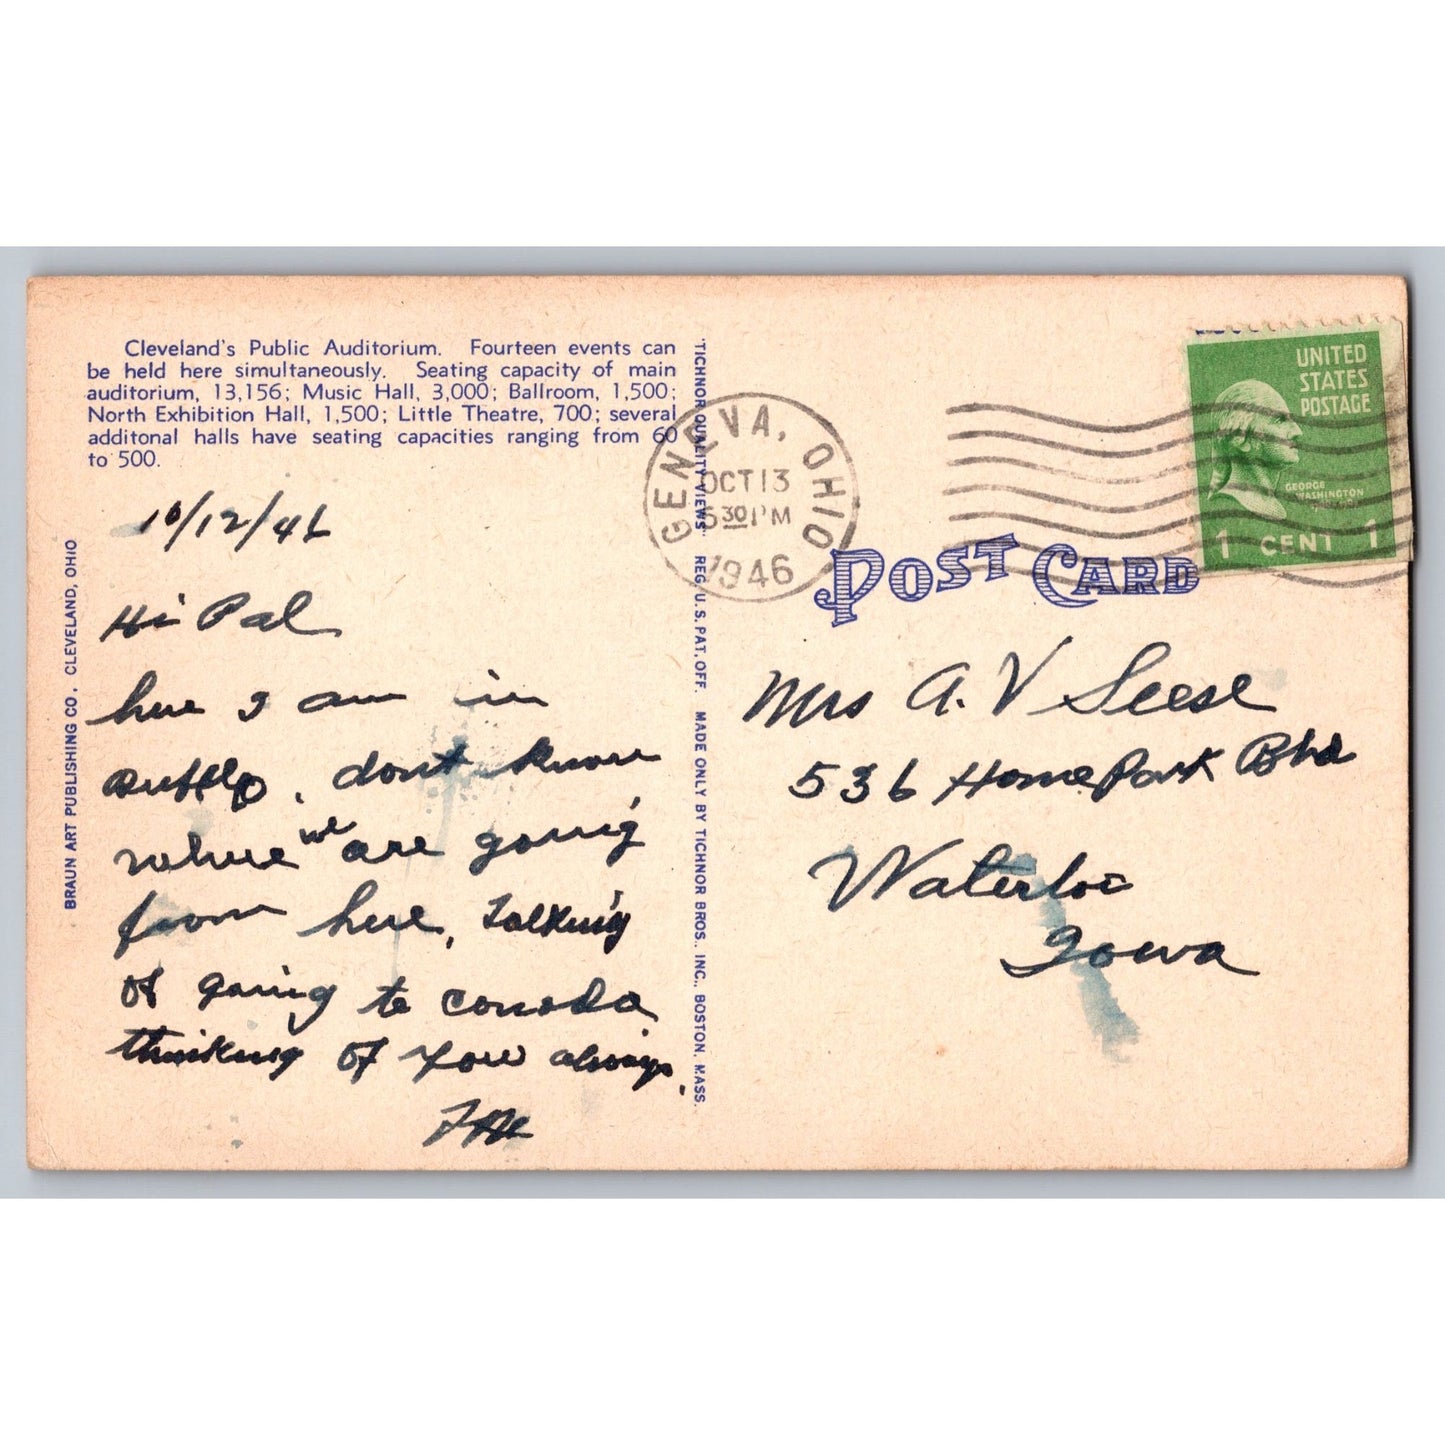 Cleveland's Public Auditorium. Fourteen events can
be held here simultaneously. Seating capacity of main
auditorium, 13,156; Music Hall, 3,000; Ballroom, 1,500;
North Exhibition Hall, 1,500; Little Theatre, 700; several
additonal halls have seating capacities ranging from 60
to 500.
10/12/46
Hi Pal
here I am in
Buffflo, dont know
where we are going
from here, talking
of going to Canada
thinking of you always.
BRAUN ART PUBLISHING CO., CLEVELAND, OHIO
"TICHNOR QUALITY VIEWS" REG. U.S. PAT. OFF. MADE ONLY BY TICHNOR BROS., INC., BOSTON, MASS.
GENEVA, OHIO
OCT 13
5 30 PM
1946
UNITED
STATES
POSTAGE
GEORGE
WASHINGTON
1 CENT 1
POST CARD
Mrs A. V Seese
536 Home Park Blvd
Waterloo
Iowa